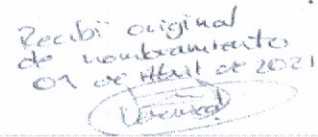 Recibí original
de nombramiento
01 de Abril de 2021